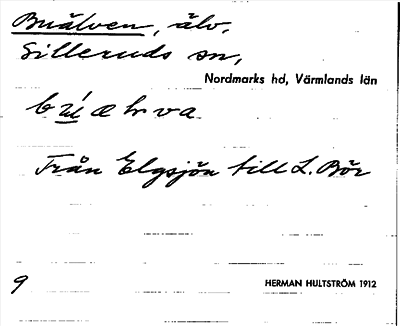 Buälven, älv.
Silleruds sn,
Nordmarks hd, Värmlands län
Från Elgsjön till L. Bör
9
HERMAN HULTSTRÖM 1912